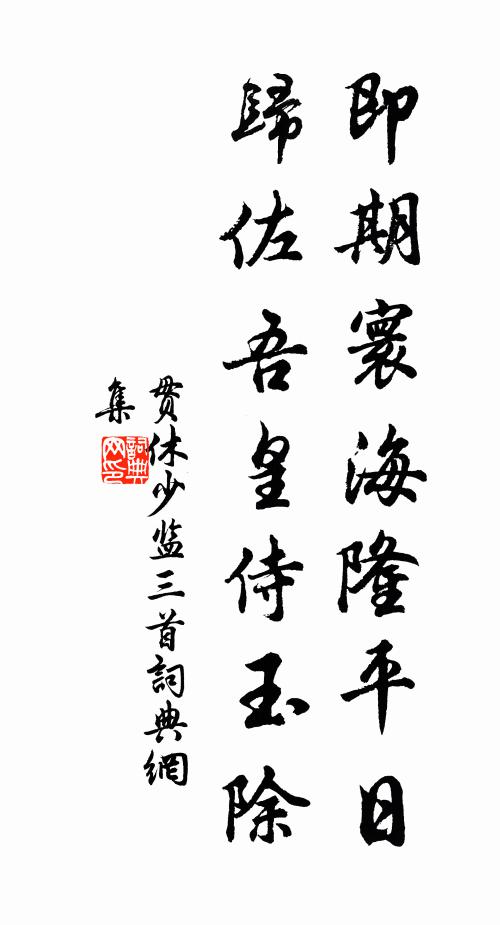 即期寰海隆平日
歸佐吾皇侍玉除
贯休少监三首詞典網
集
詞典网印